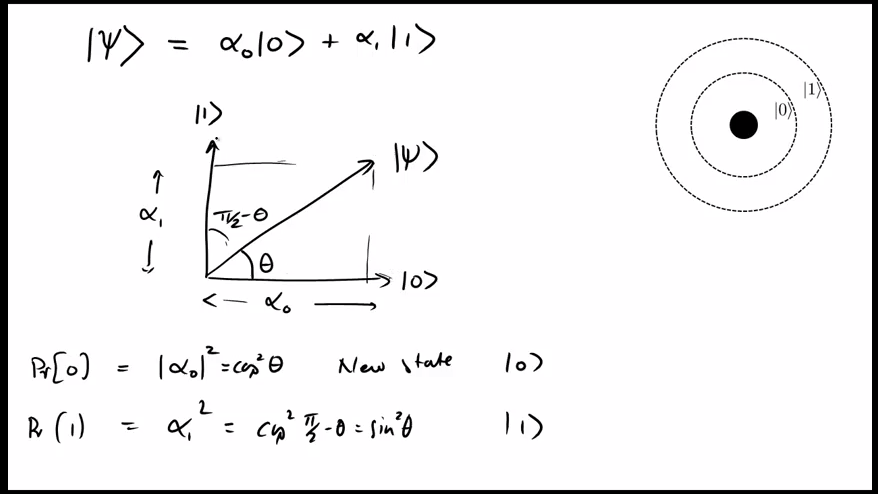 |Ψ⟩ = α₀|0⟩ + α₁|1⟩
|1⟩
|0⟩
|1⟩
|Ψ⟩
α₁
π/2-θ
θ
|0⟩
α₀
Pr[0] = |α₀|² = cos²θ New state |0⟩
Pr(1) = α₁² = cos² π/2 - θ = sin²θ |1⟩